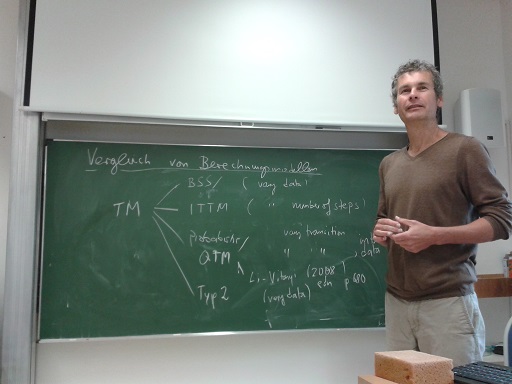 Vergleich von Berechnungsmodellen
BSS/ ( vary data !
TM ITTM ( " number of steps !
probabilistic/ vary transition
QTM " " "
data
Li-Vitanyi (2008)
edn p 680
(vary data)
Typ 2